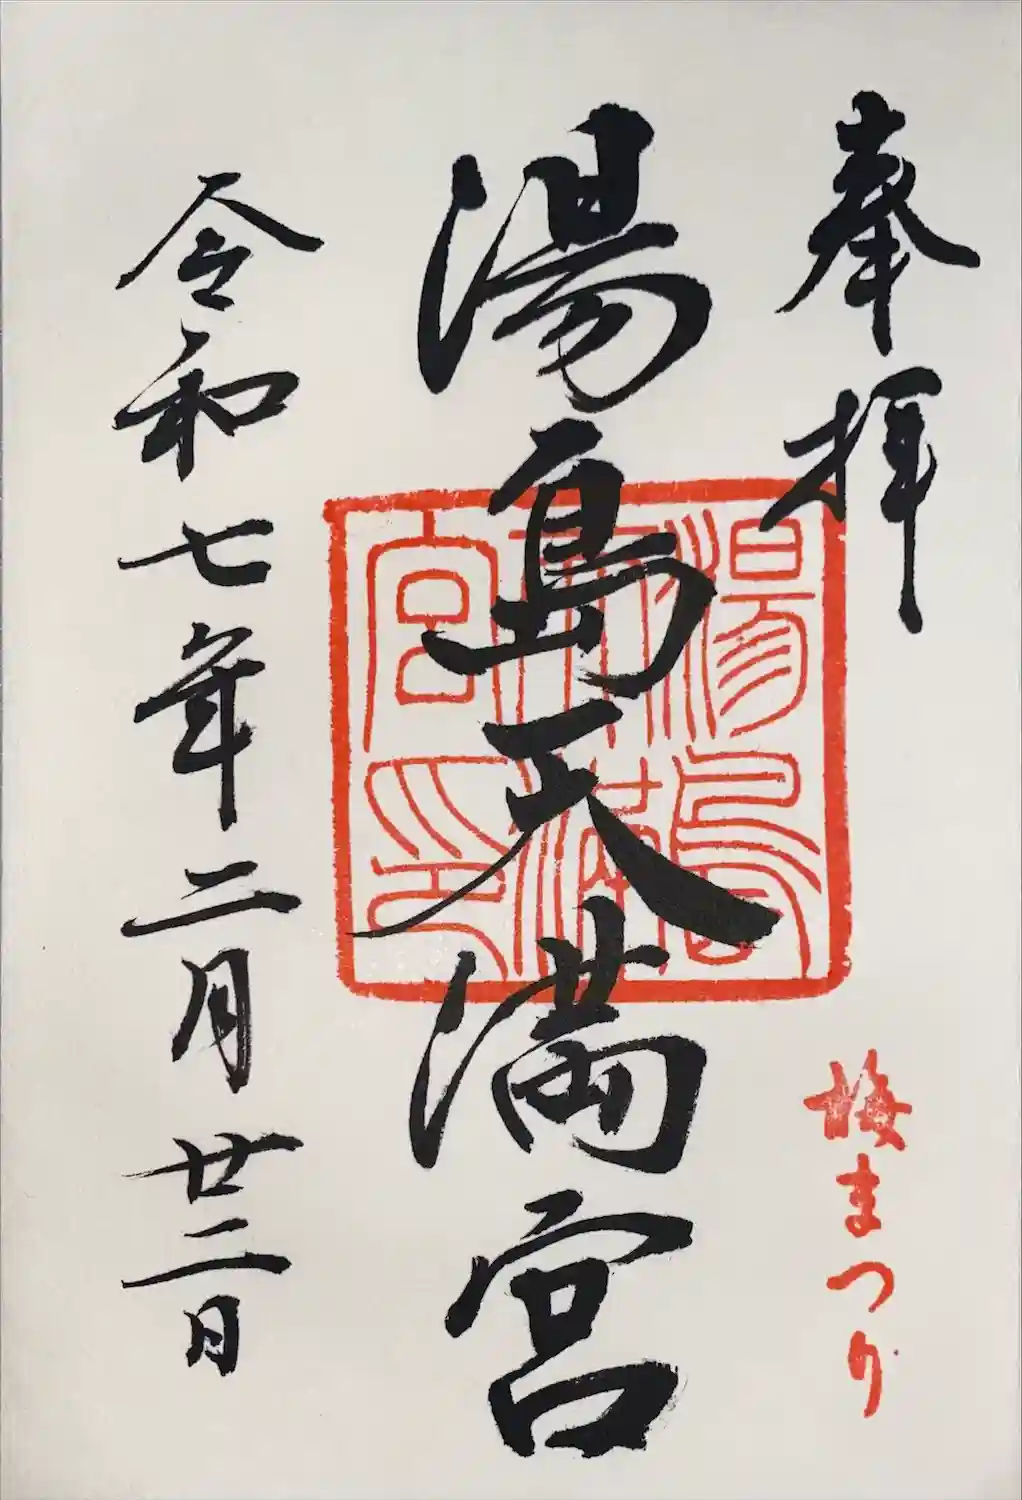 奉拝
梅まつり
湯島天満宮
湯島天満宮印
令和七年二月廿二日